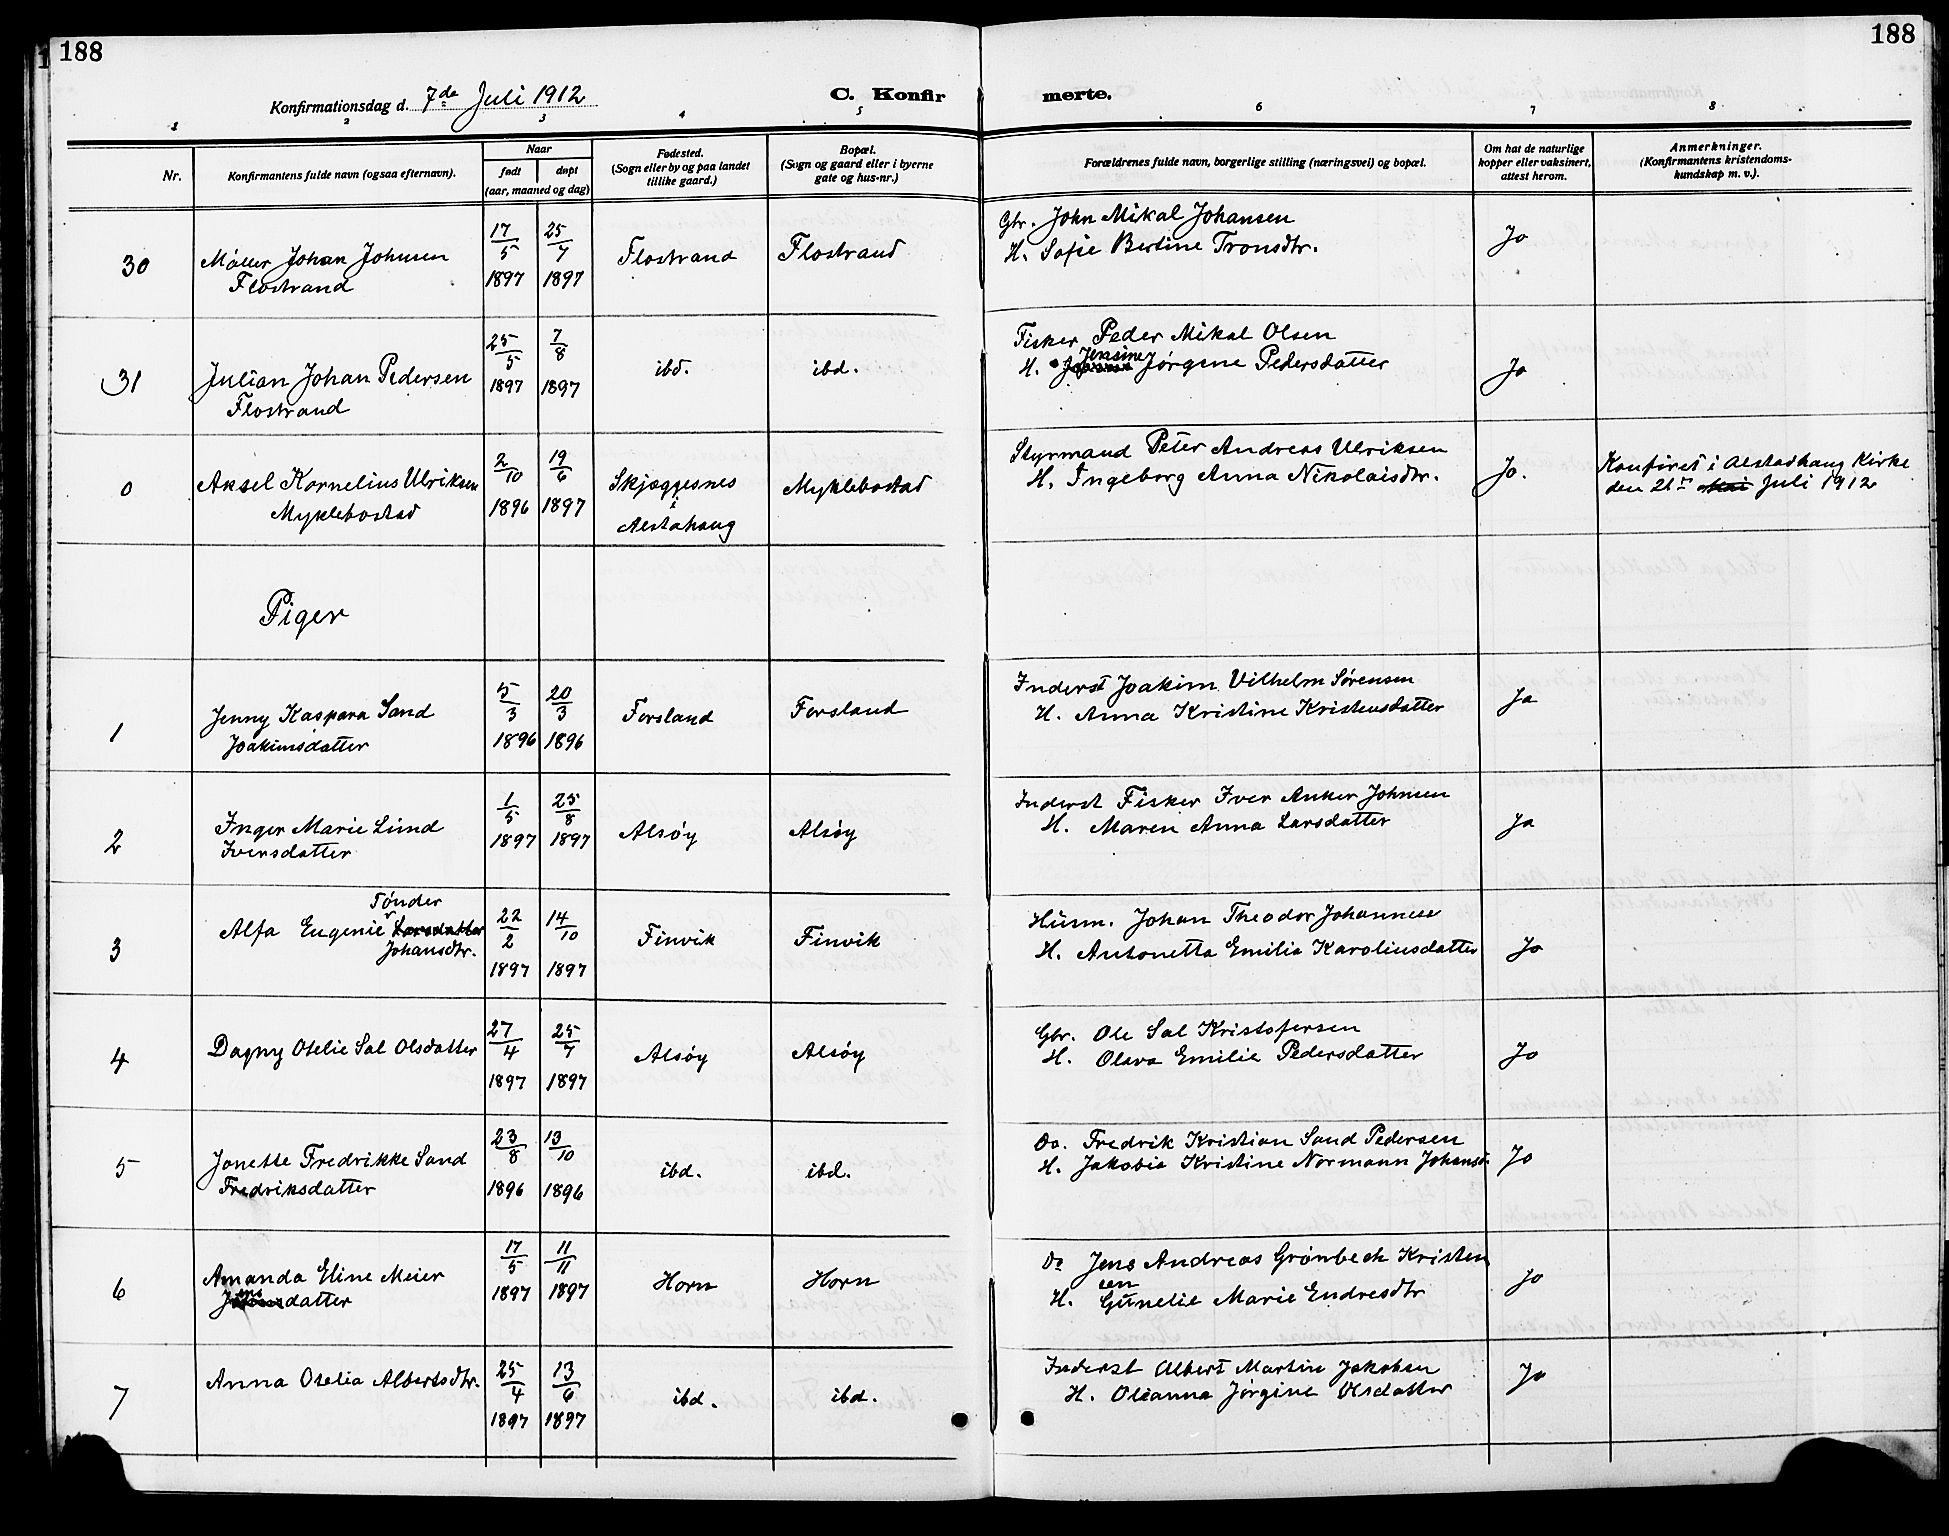 188
188
Konfirmationsdag d. 7de Juli 1912
C. Konfir
merte.
1 2 3 4 5 6 7 8
Nr.
Konfirmantens fulde navn (ogsaa efternavn).
Naar
født
døpt
(aar, maaned og dag)
Fødested.
(Sogn eller by og paa landet
tillike gaard.)
Bopæl.
(Sogn og gaard eller i byerne
gate og hus-nr.)
Forældrenes fulde navn, borgerlige stilling (næringsvei) og bopæl.
Om hat de naturlige
kopper eller vaksinert,
attest herom.
Anmerkninger.
(Konfirmantens kristendoms-
kundskap m. v.).
30 Møller Johan Johnsen 17/5 25/7 Flostrand Flostrand Gbr. John Mikal Johansen Ja
Flostrand 1897 1897 H. Sofie Bertine Tronsdtr.
31 Julian Johan Pedersen 25/5 7/8 ibd. ibd. Fisker Peder Mikal Olsen Ja
Flostrand 1897 1897 H. Jensine Jørgine Pedersdatter
0 Aksel Kornelius Ulriksen 2/10 19/6 Skjeggesnes Myklebostad Styrmand Peter Andreas Ulriksen Ja. Konfiret i Alstadhaug Kirke
Myklebostad 1896 1897 i H. Ingeborg Anna Nikolaisdtr. den 21de Mai Juli 1912
Alstahaug
Piger
1 Jenny Kaspara Sand 5/3 20/3 Forsland Forsland Inderst Joakim Vilhelm Sørensen Ja
Joakimsdatter 1896 1896 H. Anna Kristine Kristensdatter
2 Inger Marie Lind 1/5 25/8 Alsøy Alsøy Inderst Fisker Iver Anker Johnsen Ja
Iversdatter 1897 1897 H. Maren Anna Larsdatter
Tønder
3 Alfa Eugenie Larsdatter 22/2 14/10 Finvik Finvik Husm. Johan Theodor Johannese Ja
Johansdtr. 1897 1897 H. Antonetta Emilie Karoliusdatter
4 Dagny Otelie Sal Olsdatter 27/4 25/7 Alsøy Alsøy Gbr. Ole Sal Kristofersen Ja
1897 1897 H. Olava Emilie Pedersdatter
5 Jonette Fredrikke Sand 23/8 13/10 ibd. ibd. Do. Fredrik Kristian Sand Pedersen Ja
Fredriksdatter 1896 1896 H. Jakobie Kristine Normann Johansd.
6 Amanda Eline Meier 17/5 11/11 Horn Horn Do Jens Andreas Grønbech Kristen Ja
Jensdatter 1897 1897 sen
H. Gunelie Marie Endresdtr
7 Anna Otelia Albertsdtr. 25/4 13/6 ibd. ibd. Inderst Albert Martin Jakobsen Ja
1897 1897 H. Oleanna Jørgine Olsdatter